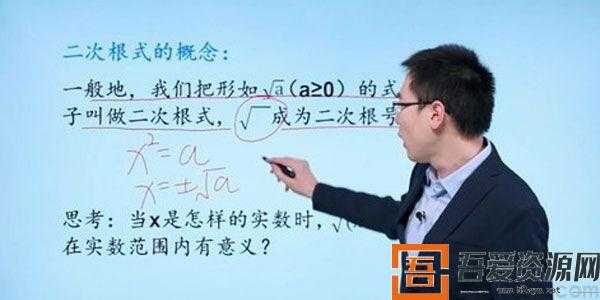 二次根式的概念：
一般地，我们把形如√a（a≥0）的式
子叫做二次根式，√ 成为二次根号
x²=a
x=±√a
思考：当x是怎样的实数时，√(
在实数范围内有意义？
吾爱资源网